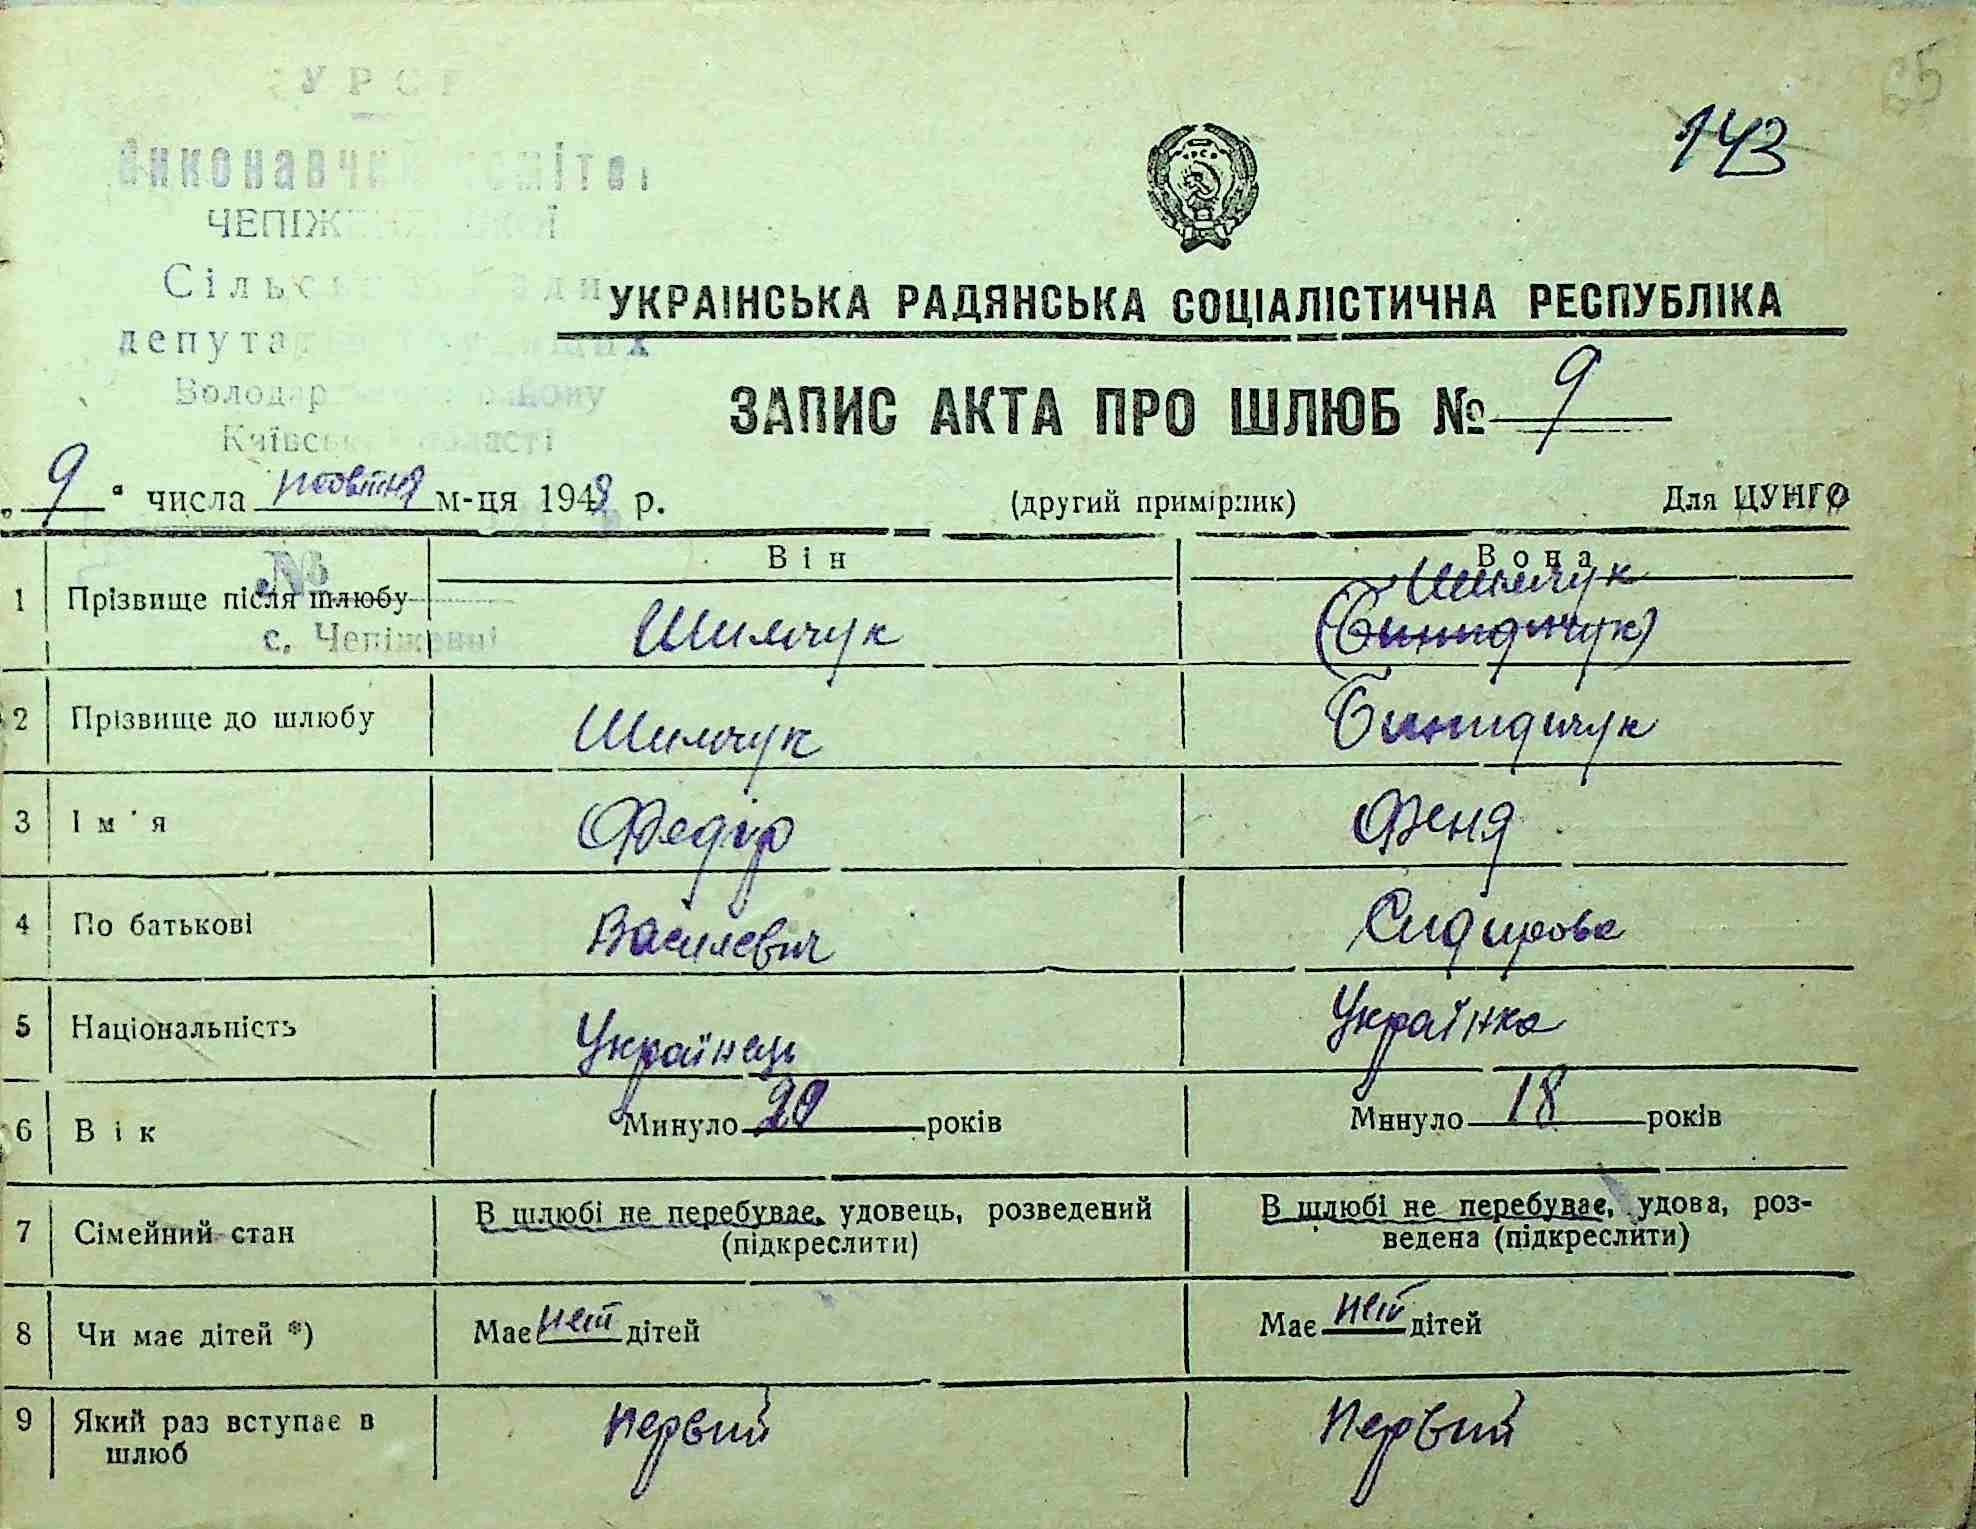 УРСР
Виконавчий комітет
ЧЕПІЖЕНСЬКОЇ
Сільської Ради
депутатів трудящих
Володарського району
Київської області
65
143
УРСР
УКРАІНСЬКА РАДЯНСЬКА СОЦІАЛІСТИЧНА РЕСПУБЛІКА
ЗАПИС АКТА ПРО ШЛЮБ № 9
„ 9 “ числа жовтня м-ця 1948 р.
(другий примірник)
Для ЦУНГО
№
с. Чепіженці
Він
Вона
1 Прізвище після шлюбу
Шимчук
Шимчук
2 Прізвище до шлюбу
Шимчук
3 Ім'я
Федір
Феня
4 По батькові
Василевич
Сидирова
5 Національність
Українець
Українка
6 Вік
Минуло 20 років
Минуло 18 років
7 Сімейний стан
В шлюбі не перебуває, удовець, розведений
(підкреслити)
В шлюбі не перебуває, удова, роз-
ведена (підкреслити)
8 Чи має дітей *)
Має нет дітей
Має нет дітей
9 Який раз вступає в
шлюб
первий
первий